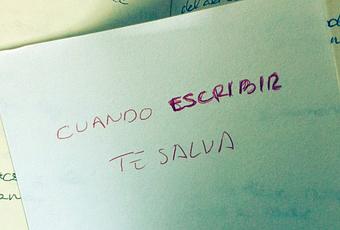 CUANDO ESCRIBIR
TE SALVA